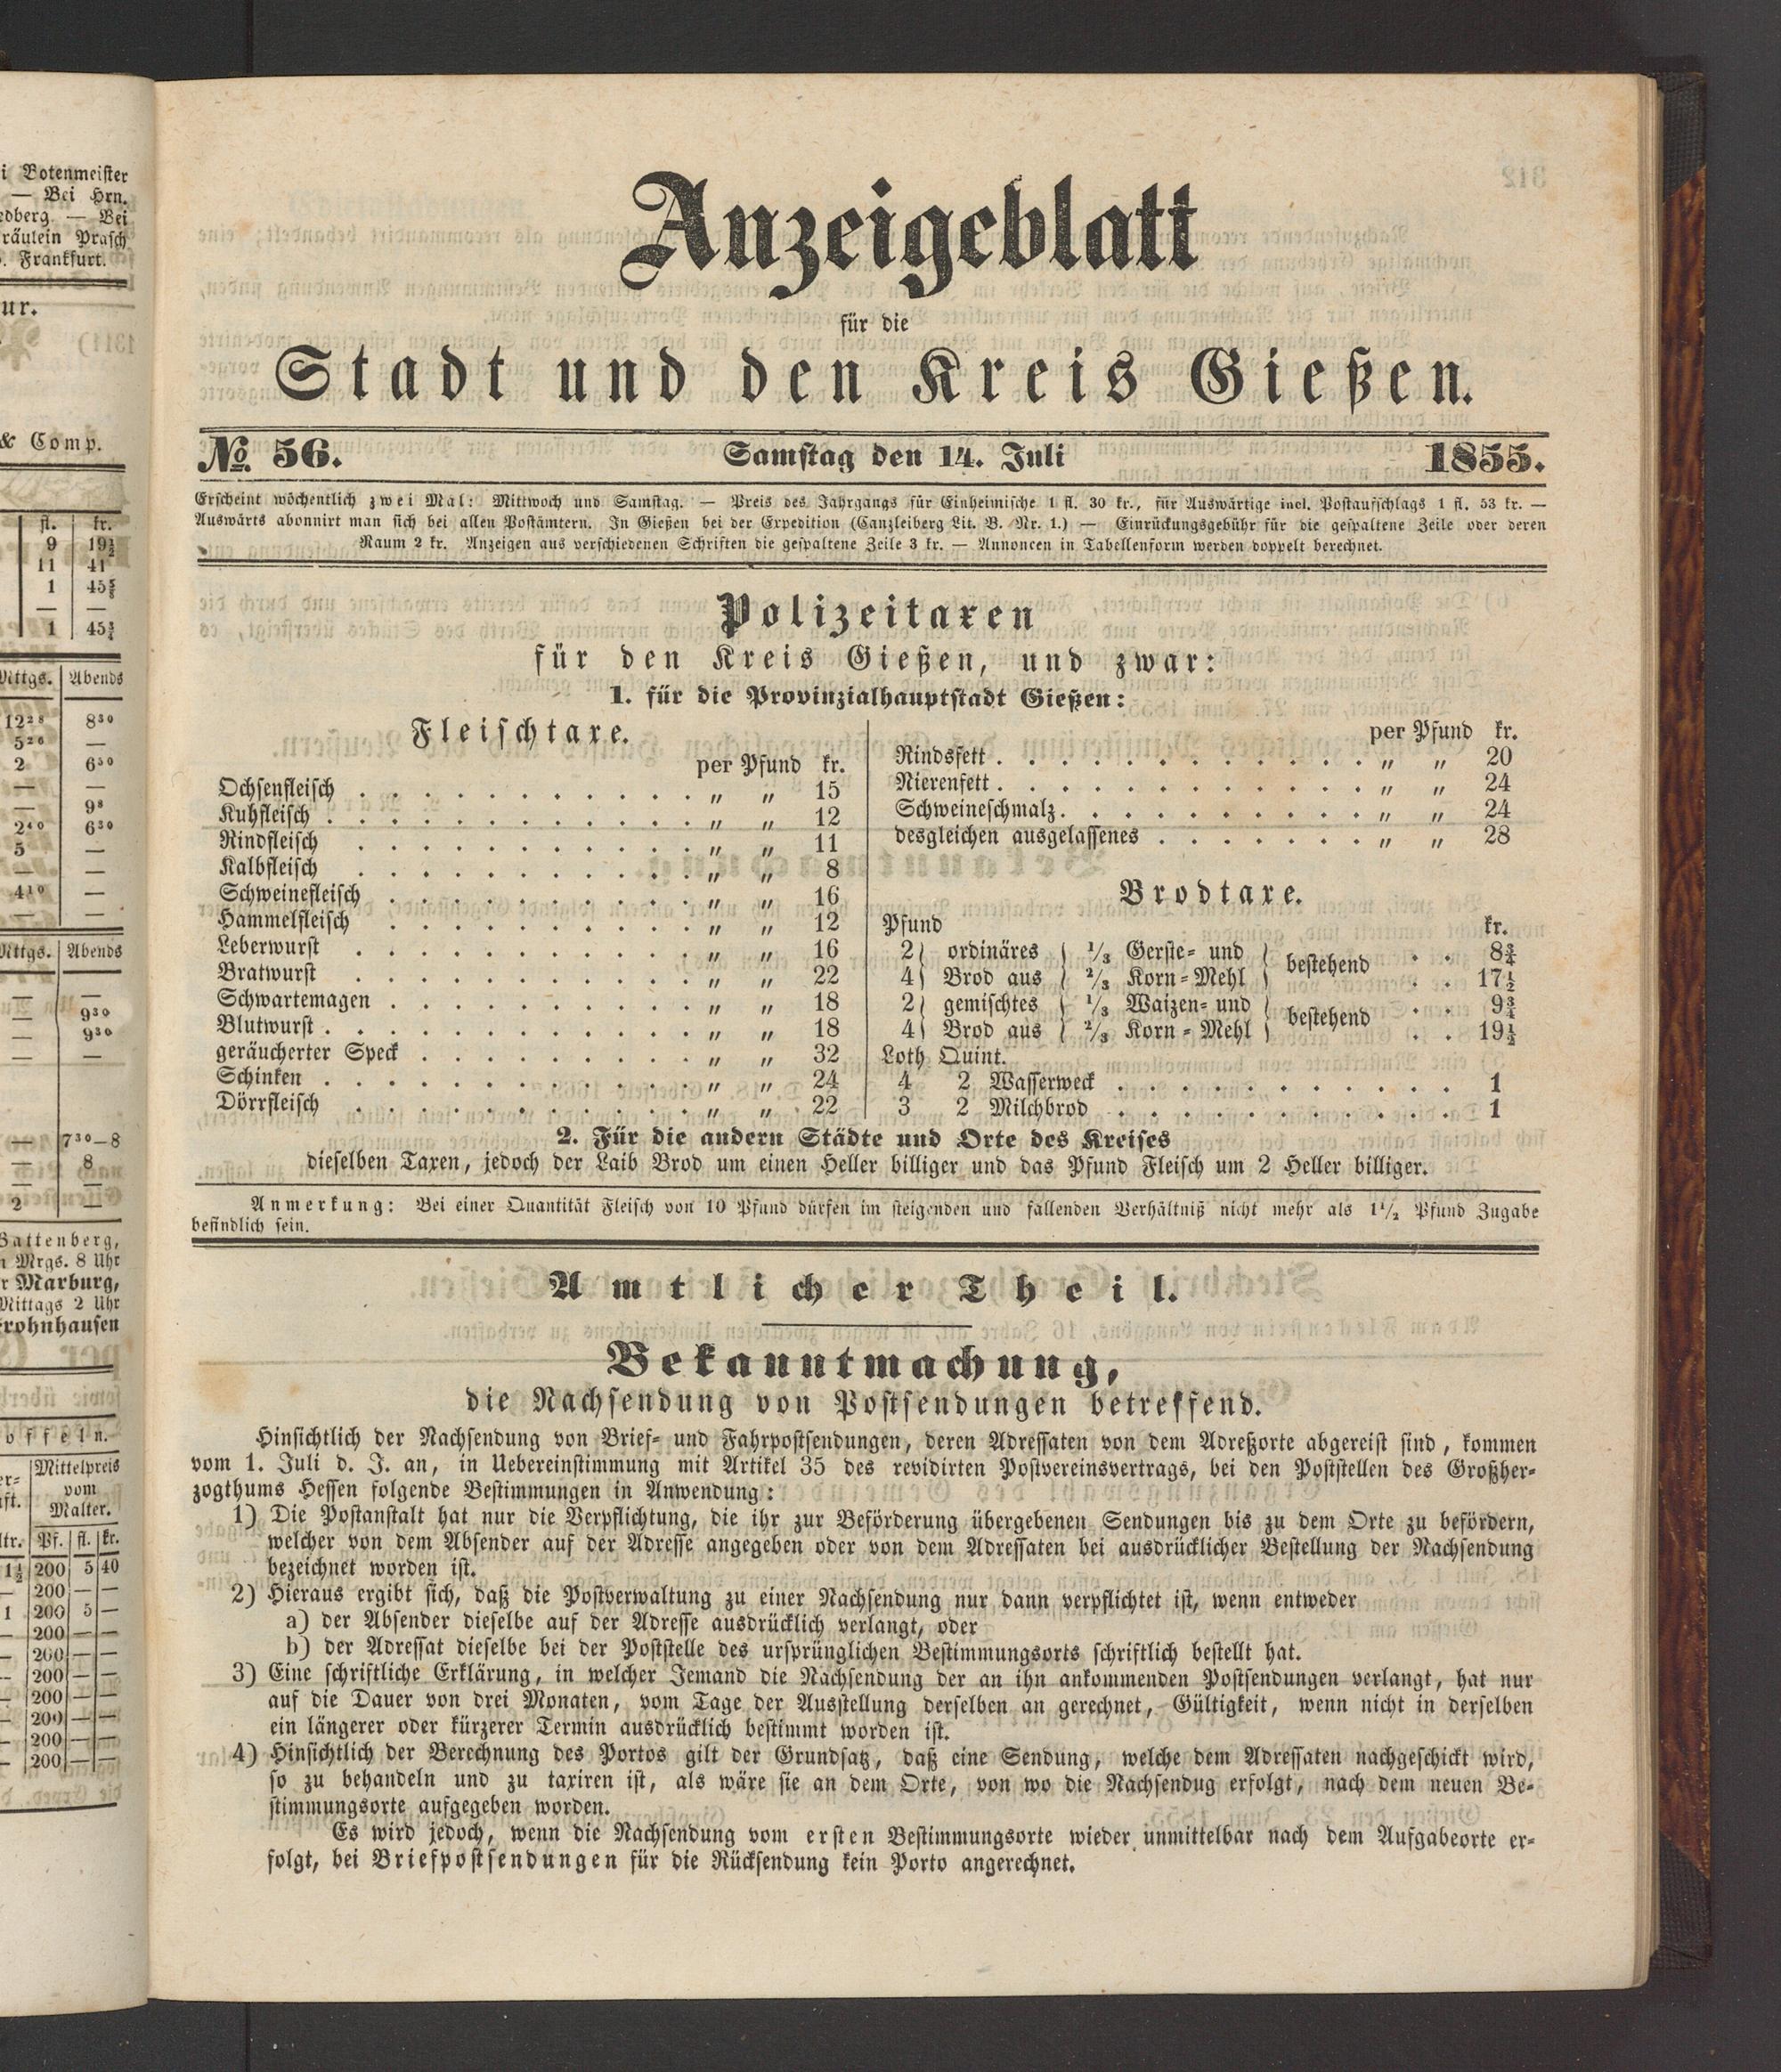 i Botenmeister
— Bei Hrn.
edberg. — Bei
räulein Prasch
. Frankfurt.
ur.
& Comp.
fl. kr.
9 19½
11 41
1 45⅝
— —
1 45¾
Mttgs. Abends
12²⁸ 8³⁰
5²⁶ —
2 6⁵⁰
— —
— 9⁸
2⁴⁰ 6³⁰
5 —
— —
4¹⁰ —
— —
Mttgs. Abends
— —
— 9³⁰
— 9³⁰
— —
— 7³⁰—8
— 8
— —
2 —
Battenberg,
n Mrgs. 8 Uhr
r Marburg,
Mittags 2 Uhr
rohnhausen
offeln.
er= Mittelpreis
ft. vom
Malter.
ltr. Pf. fl. kr.
1½ 200 5 40
— 200 — —
1 200 5 —
— 200 — —
— 200 — —
— 200 — —
— 200 — —
— 200 — —
— 200 — —
— 200 — —
Anzeigeblatt
für die
Stadt und den Kreis Gießen.
No. 56. Samstag den 14. Juli 1855.
Erscheint wöchentlich zwei Mal: Mittwoch und Samstag. — Preis des Jahrgangs für Einheimische 1 fl. 30 kr., für Auswärtige incl. Postaufschlags 1 fl. 53 kr. —
Auswärts abonnirt man sich bei allen Postämtern. In Gießen bei der Expedition (Canzleiberg Lit. B. Nr. 1.) — Einrückungsgebühr für die gespaltene Zeile oder deren
Raum 2 kr. Anzeigen aus verschiedenen Schriften die gespaltene Zeile 3 kr. — Annoncen in Tabellenform werden doppelt berechnet.
Polizeitaxen
für den Kreis Gießen, und zwar:
1. für die Provinzialhauptstadt Gießen:
Fleischtaxe.
per Pfund kr.
Ochsenfleisch . . . . . . . . . . . „ „ 15
Kuhfleisch . . . . . . . . . . . . „ „ 12
Rindfleisch . . . . . . . . . . . „ „ 11
Kalbfleisch . . . . . . . . . . . „ „ 8
Schweinefleisch . . . . . . . . . . „ „ 16
Hammelfleisch . . . . . . . . . . „ „ 12
Leberwurst . . . . . . . . . . . „ „ 16
Bratwurst . . . . . . . . . . . „ „ 22
Schwartemagen . . . . . . . . . . „ „ 18
Blutwurst . . . . . . . . . . . . „ „ 18
geräucherter Speck . . . . . . . . . „ „ 32
Schinken . . . . . . . . . . . . „ „ 24
Dörrfleisch . . . . . . . . . . . „ „ 22
per Pfund kr.
Rindsfett . . . . . . . . . . . . „ „ 20
Nierenfett . . . . . . . . . . . . „ „ 24
Schweineschmalz . . . . . . . . . . „ „ 24
desgleichen ausgelassenes . . . . . . . „ „ 28
Brodtaxe.
Pfund kr.
2) ordinäres ( ⅓ Gerste= und ) bestehend . . 8¾
4) Brod aus ( ⅔ Korn=Mehl ) . . 17½
2) gemischtes ( ⅓ Waizen= und ) bestehend . . 9¾
4) Brod aus ( ⅔ Korn=Mehl ) . . 19½
Loth Quint.
4 2 Wasserweck . . . . . . . . . . . 1
3 2 Milchbrod . . . . . . . . . . . 1
2. Für die andern Städte und Orte des Kreises
dieselben Taxen, jedoch der Laib Brod um einen Heller billiger und das Pfund Fleisch um 2 Heller billiger.
Anmerkung: Bei einer Quantität Fleisch von 10 Pfund dürfen im steigenden und fallenden Verhältniß nicht mehr als 1½ Pfund Zugabe
befindlich sein.
Amtlicher Theil.
Bekanntmachung,
die Nachsendung von Postsendungen betreffend.
Hinsichtlich der Nachsendung von Brief= und Fahrpostsendungen, deren Adressaten von dem Adreßorte abgereist sind, kommen
vom 1. Juli d. J. an, in Uebereinstimmung mit Artikel 35 des revidirten Postvereinsvertrags, bei den Poststellen des Großher=
zogthums Hessen folgende Bestimmungen in Anwendung:
1) Die Postanstalt hat nur die Verpflichtung, die ihr zur Beförderung übergebenen Sendungen bis zu dem Orte zu befördern,
welcher von dem Absender auf der Adresse angegeben oder von dem Adressaten bei ausdrücklicher Bestellung der Nachsendung
bezeichnet worden ist.
2) Hieraus ergibt sich, daß die Postverwaltung zu einer Nachsendung nur dann verpflichtet ist, wenn entweder
a) der Absender dieselbe auf der Adresse ausdrücklich verlangt, oder
b) der Adressat dieselbe bei der Poststelle des ursprünglichen Bestimmungsorts schriftlich bestellt hat.
3) Eine schriftliche Erklärung, in welcher Jemand die Nachsendung der an ihn ankommenden Postsendungen verlangt, hat nur
auf die Dauer von drei Monaten, vom Tage der Ausstellung derselben an gerechnet, Gültigkeit, wenn nicht in derselben
ein längerer oder kürzerer Termin ausdrücklich bestimmt worden ist.
4) Hinsichtlich der Berechnung des Portos gilt der Grundsatz, daß eine Sendung, welche dem Adressaten nachgeschickt wird,
so zu behandeln und zu taxiren ist, als wäre sie an dem Orte, von wo die Nachsendug erfolgt, nach dem neuen Be=
stimmungsorte aufgegeben worden.
Es wird jedoch, wenn die Nachsendung vom ersten Bestimmungsorte wieder unmittelbar nach dem Aufgabeorte er=
folgt, bei Briefpostsendungen für die Rücksendung kein Porto angerechnet.